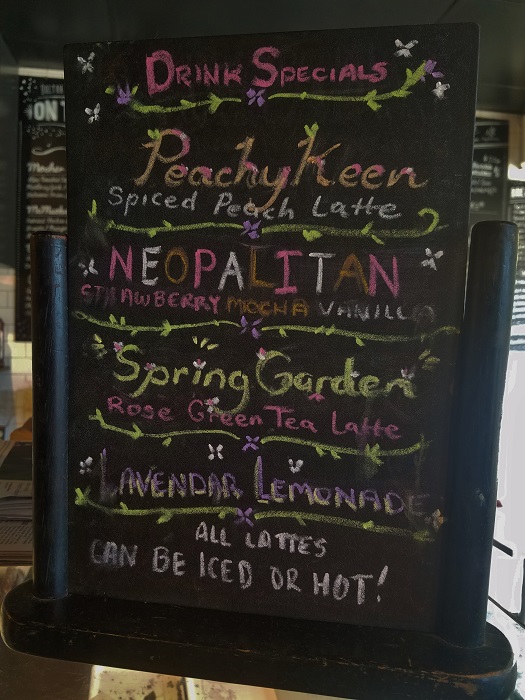 DRINK SPECIALS
Peachy Keen
Spiced Peach Latte
NEOPALITAN
STRAWBERRY MOCHA VANILLA
Spring Garden
Rose Green Tea Latte
LAVENDAR LEMONADE
ALL LATTES
CAN BE ICED OR HOT!